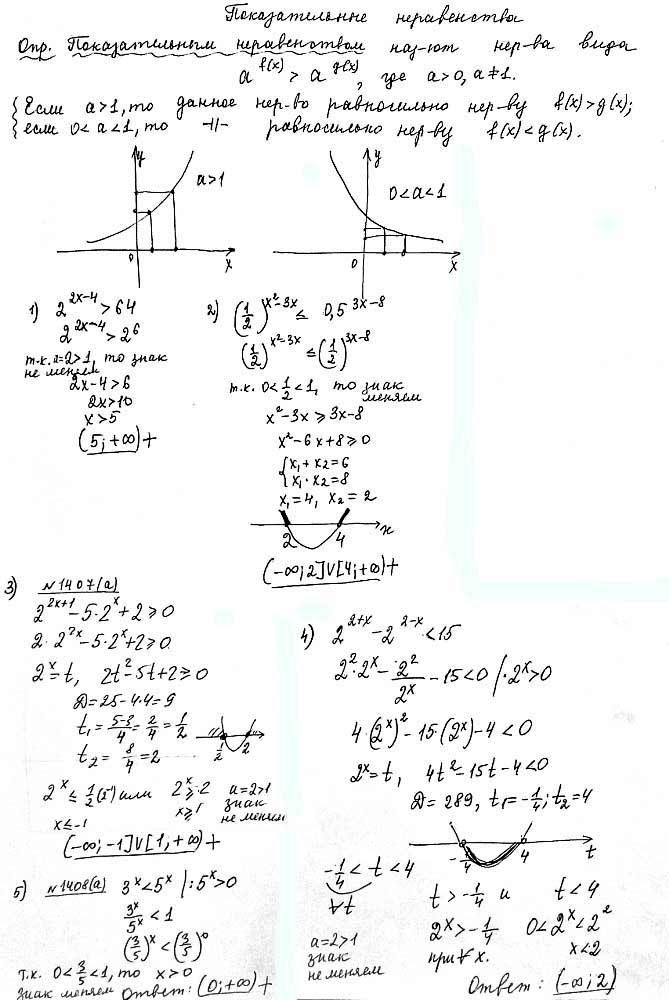 Показательные неравенства
Опр. Показательным неравенством наз-ют нер-ва вида
a^{f(x)} > a^{g(x)}, где a>0, a≠1.
Если a>1, то данное нер-во равносильно нер-ву f(x)>g(x);
если 0<a<1, то -//- равносильно нер-ву f(x)<g(x).
y
a>1
0
x
y
0<a<1
0
x
1) 2^{2x-4} > 64
2^{2x-4} > 2^6
т.к. a=2>1, то знак
не меняем
2x-4>6
2x>10
x>5
(5; +∞) +
2) (1/2)^{x²-3x} ≤ 0,5^{3x-8}
(1/2)^{x²-3x} ≤ (1/2)^{3x-8}
т.к. 0<1/2<1, то знак
меняем
x²-3x ≥ 3x-8
x²-6x+8 ≥ 0
{x₁+x₂=6
x₁·x₂=8
x₁=4, x₂=2
2 4 x
(-∞; 2]∪[4; +∞) +
3) №1407(а)
2^{2x+1} - 5·2^x + 2 ≥ 0
2·2^{2x} - 5·2^x + 2 ≥ 0
2^x = t, 2t² - 5t + 2 ≥ 0
D = 25 - 4·4 = 9
t₁ = (5-3)/4 = 2/4 = 1/2
t₂ = 8/4 = 2
1/2 2
2^x ≤ 1/2 (2^{-1}) или 2^x ≥ 2
a=2>1
знак
не меняем
x ≤ -1
x ≥ 1
(-∞; -1]∪[1, +∞) +
4) 2^{2+x} - 2^{2-x} < 15
2²·2^x - 2²/2^x - 15 < 0 |·2^x > 0
4·(2^x)² - 15·(2^x) - 4 < 0
2^x = t, 4t² - 15t - 4 < 0
D = 289, t₁ = -1/4; t₂ = 4
-1/4 4 t
-1/4 < t < 4
∀t
t > -1/4 и t < 4
2^x > -1/4 0 < 2^x < 2²
при ∀ x. x < 2
a=2>1
знак
не меняем
Ответ: (-∞; 2)
5) №1408(а) 3^x < 5^x |:5^x > 0
3^x/5^x < 1
(3/5)^x < (3/5)^0
т.к. 0<3/5<1, то x>0
знак меняем Ответ: (0; +∞) +